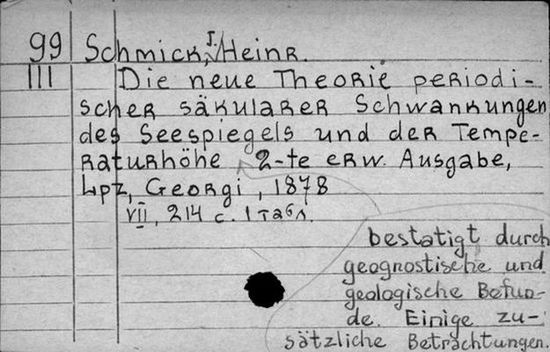 99 Schmick, J. Heinr.
III Die neue Theorie periodi-
scher säkularer Schwankungen
des Seespiegels und der Tempe-
raturhöhe 2-te erw. Ausgabe,
Lpz, Georgi, 1878
VII, 214 c. 1 табл.
bestatigt durch
geognostische und
geologische Befun-
de. Einige zu-
sätzliche Betrachtungen.